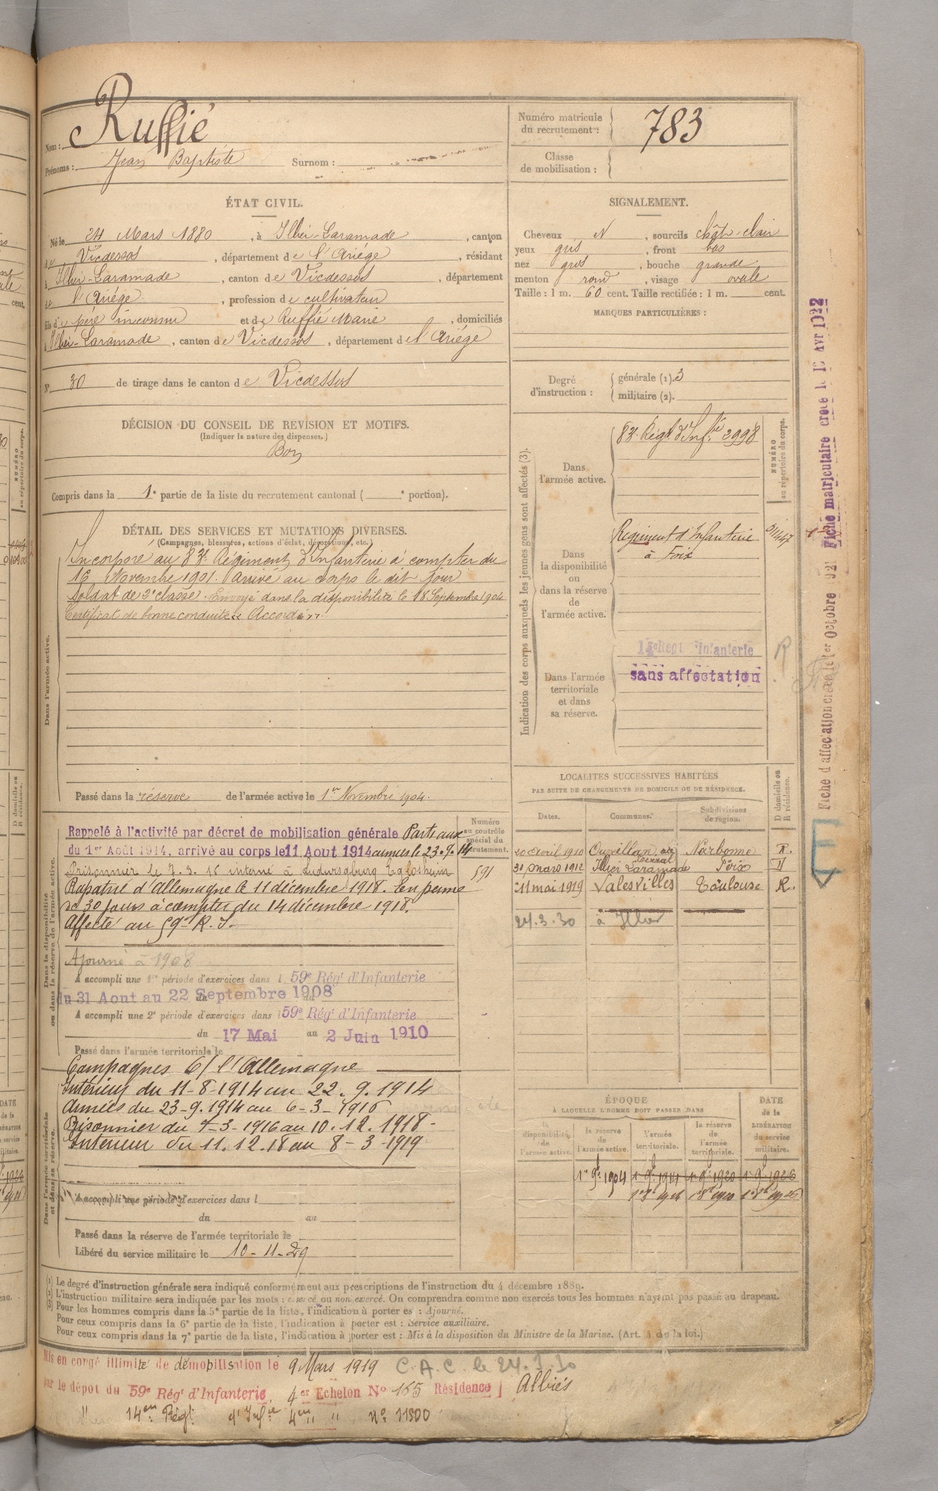 Nom : Ruffié
Prénoms : Jean Baptiste Surnom :
Numéro matricule du recrutement : 783
Classe de mobilisation :
ÉTAT CIVIL.
Né le 24 Mars 1880, à Illier-Laramade, canton
de Vicdessos, département de l'Ariège, résidant
à Illier-Laramade, canton de Vicdessos, département
de l'Ariège, profession de cultivateur
fils de père inconnu et de Ruffié Marie, domiciliés
à Illier-Laramade, canton de Vicdessos, département de l'Ariège
N° 30 de tirage dans le canton de Vicdessos
SIGNALEMENT.
Cheveux N, sourcils chât. clair
yeux gris, front bas
nez gros, bouche grande
menton rond, visage ovale
Taille : 1 m. 60 cent. Taille rectifiée : 1 m. cent.
MARQUES PARTICULIÈRES :
Degré d'instruction : générale (1). 3
militaire (2).
DÉCISION DU CONSEIL DE REVISION ET MOTIFS.
(Indiquer la nature des dispenses.)
Bon
Compris dans la 1e partie de la liste du recrutement cantonal ( e portion).
DÉTAIL DES SERVICES ET MUTATIONS DIVERSES.
(Campagnes, blessures, actions d'éclat, décorations, etc.)
Dans l'armée active.
Incorporé au 83e Régiment d'Infanterie à compter du
16 Novembre 1901. Arrivé au corps le dit jour
Soldat de 2e classe. Envoyé dans la disponibilité le 18 Septembre 1904
Certificat de bonne conduite Accordé
Passé dans la réserve de l'armée active le 1er Novembre 1904.
Indication des corps auxquels les jeunes gens sont affectés (3).
NUMÉRO au répertoire du corps.
Dans l'armée active.
83e Régt d'Infie 2998
Dans la disponibilité ou dans la réserve de l'armée active.
Régiment d'Infanterie
à Foix
Dans l'armée territoriale et dans sa réserve.
14e Régt Infanterie
sans affectation
R
LOCALITÉS SUCCESSIVES HABITÉES
PAR SUITE DE CHANGEMENTS DE DOMICILE OU DE RÉSIDENCE.
Dates. Communes. Subdivisions de région. D domicile ou R résidence.
20 Avril 1910 Cuxellan Narbonne R.
31 mars 1912 Illier Laramade Foix
21 mai 1919 Salesvilles Toulouse R.
24.3.30 à Illier
Dans la disponibilité ou dans la réserve de l'armée active
Numéro au contrôle spécial du recrutement.
591
Rappelé à l'activité par décret de mobilisation générale Parti aux
du 1er Août 1914, arrivé au corps le 11 Aout 1914 armées le 23.9.14
Prisonnier le 7.3.16 interné à Ludwigsburg
Rapatrié d'Allemagne le 11 décembre 1918. En perme
de 30 jours à compter du 14 décembre 1918.
Affecté au 59e R.I.
Ajourné à 1908
A accompli une 1re période d'exercices dans l 59e Rég' d'Infanterie
du 31 Aout au 22 Septembre 1908
A accompli une 2e période d'exercices dans l 59e Rég' d'Infanterie
du 17 Mai au 2 Juin 1910
Passé dans l'armée territoriale le
Campagnes C/ l'Allemagne
Intérieur du 11-8-1914 au 22.9.1914
Armées du 23-9-1914 au 6-3-1916
Prisonnier du 7-3-1916 au 10.12.1918-
Intérieur du 11.12.18 au 8-3-1919
Dans l'armée territoriale et dans sa réserve.
A accompli une période d'exercices dans l
du au
Passé dans la réserve de l'armée territoriale le
Libéré du service militaire le 10-11-29
ÉPOQUE
À LAQUELLE L'HOMME DOIT PASSER DANS
la disponibilité de l'armée active. la réserve de l'armée active. l'armée territoriale. la réserve de l'armée territoriale.
DATE de la LIBÉRATION du service militaire.
(1) Le degré d'instruction générale sera indiqué conformément aux prescriptions de l'instruction du 4 décembre 1889.
(2) L'instruction militaire sera indiquée par les mots : exercé ou non exercé. On comprendra comme non exercés tous les hommes n'ayant pas passé au drapeau.
(3) Pour les hommes compris dans la 5e partie de la liste, l'indication à porter est : Ajourné.
Pour ceux compris dans la 6e partie de la liste, l'indication à porter est : Service auxiliaire.
Pour ceux compris dans la 7e partie de la liste, l'indication à porter est : Mis à la disposition du Ministre de la Marine. (Art. 4 de la loi.)
Mis en congé illimité de démobilisation le 9 Mars 1919 C.A.C. le 24.3.30
par le dépot du 59e Rég' d'Infanterie 4er Echelon N° 165 Résidence Albiés
14e Régt d'Infie 4em " " n° 11800
Fiche d'affectation créée le 1er Octobre 1921 Fiche matriculaire créée le 15 Avr 1922